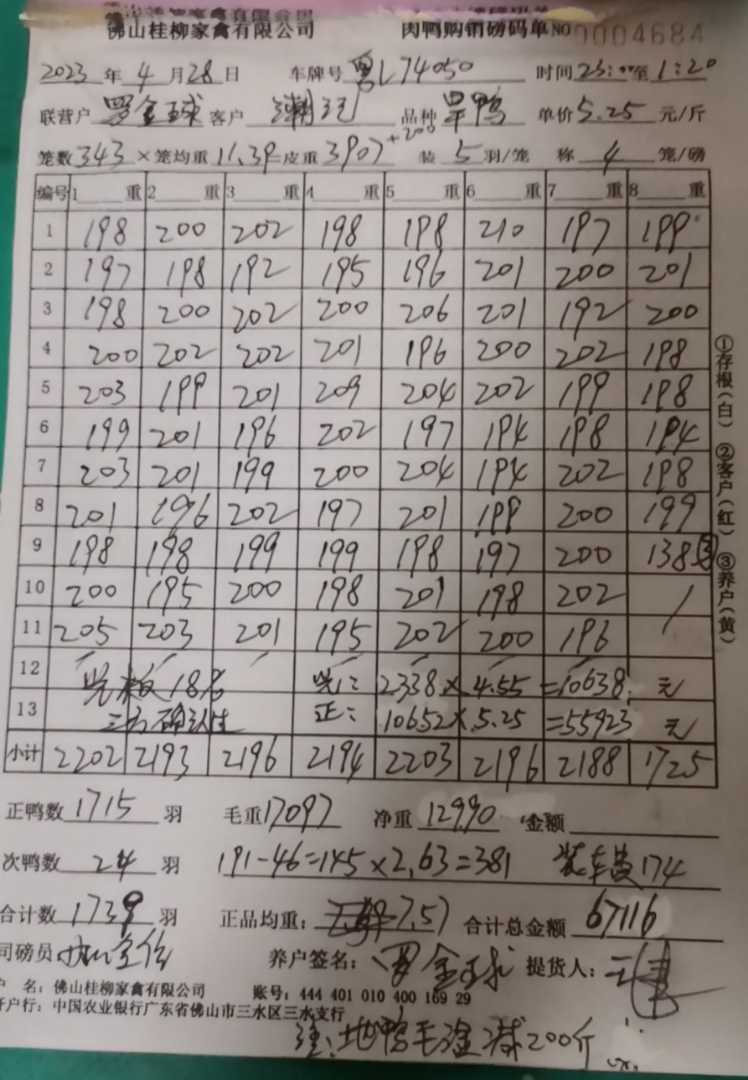 佛山桂柳家禽有限公司 肉鸭购销磅码单 NO 0004684
2023 年 4 月 28 日 车牌号 粤L74050 时间 23:00 至 1:20
联营户 罗金球 客户 品种 旱鸭 单价 5.25 元/斤
笼数 343 × 笼均重 11.39 = 皮重 3907 +200 装 5 羽/笼 称 4 笼/磅
编号 1 重 2 重 3 重 4 重 5 重 6 重 7 重 8 重
1 198 200 202 198 198 210 197 199
2 197 198 192 195 196 201 200 201
3 198 200 202 200 206 201 192 200
4 200 202 202 201 196 200 202 198
5 203 199 201 209 204 202 199 198
6 199 201 196 202 197 194 198 194
7 203 201 199 200 204 194 202 198
8 201 196 202 197 201 199 200 199
9 198 198 199 199 198 197 200 138 ③
10 200 195 200 198 201 198 202 /
11 205 203 201 195 202 200 196
12 18% 2338 × 4.55 = 10638 元
13 三方确认 正: 10652 × 5.25 = 55923 元
小计 2202 2193 2196 2194 2203 2196 2188 1725
正鸭数 1715 羽 毛重 17097 净重 12990 金额
次鸭数 24 羽 191-46=145×2.63=381 装车费 174
合计数 1739 羽 正品均重: 7.57 合计总金额 67116
司磅员 养户签名: 罗金球 提货人:
户 名: 佛山桂柳家禽有限公司 账号: 444 401 010 400 169 29
开户行: 中国农业银行广东省佛山市三水区三水支行
注: 地鸭毛 减200斤
①存根(白) ②客户(红) ③养户(黄)